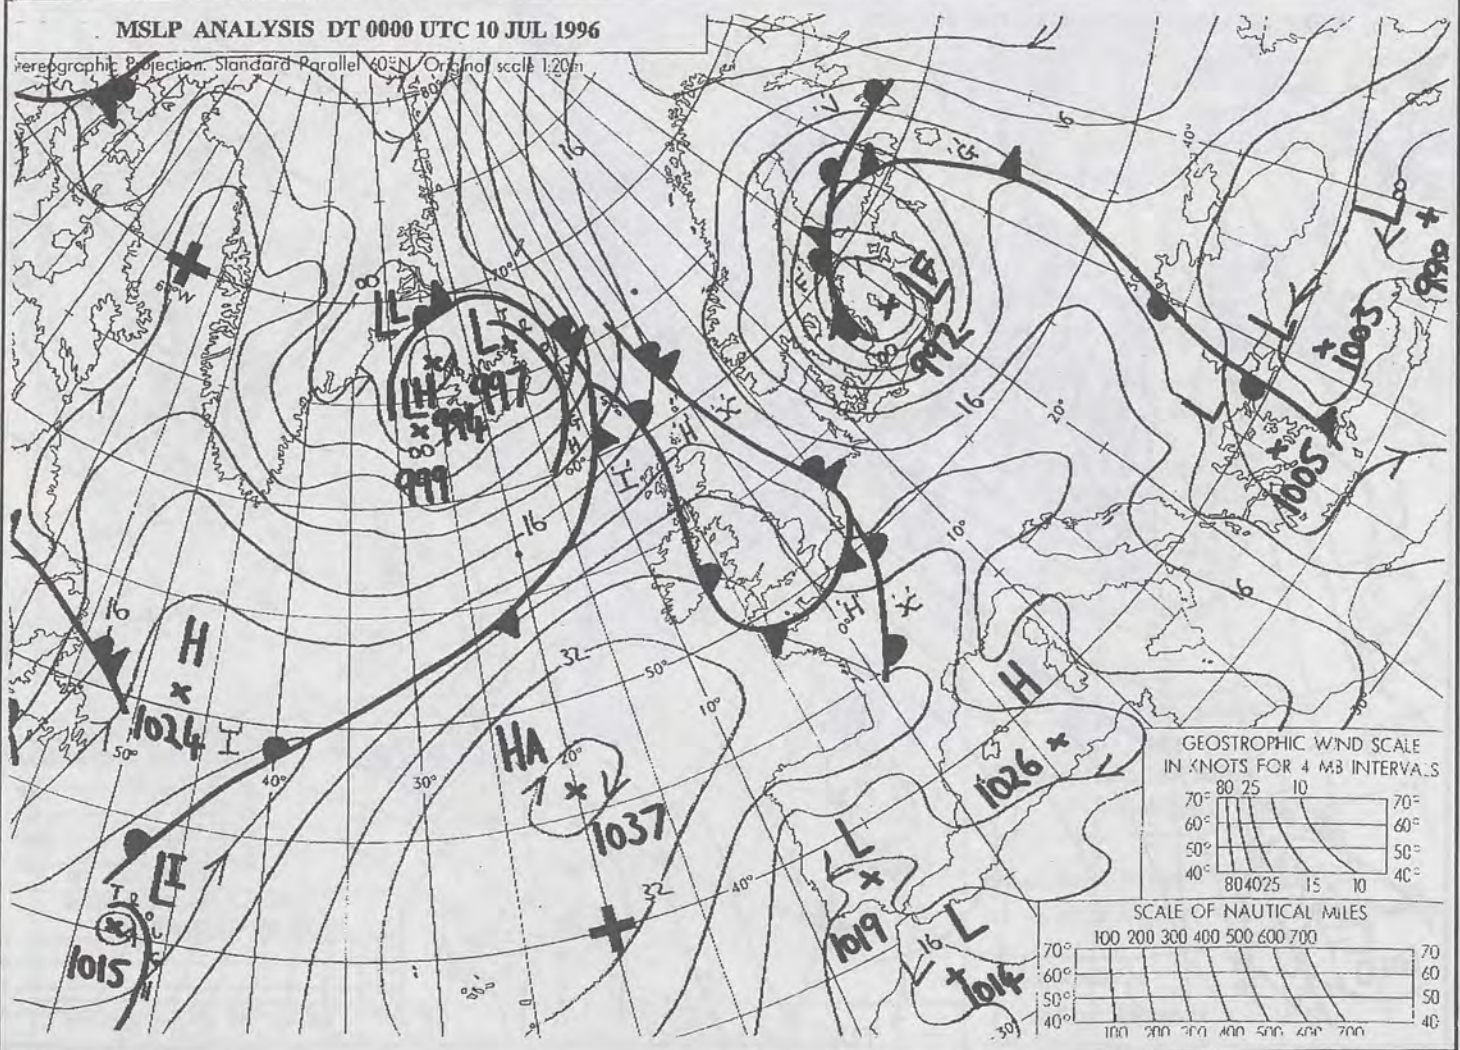 MSLP ANALYSIS DT 0000 UTC 10 JUL 1996
ereographic Projection. Standard Parallel 60°N Original scale 1:20m
80°
16
16
40°
V
G
L
990
L
1003
L
1005
LF
992
16
20°
70°
LL
L
LH
997
994
999
00
60°
16
X
H
10°
16
16
H
1024
I
50°
40°
30°
20°
10°
32
50°
HA
1037
32
40°
H
1026
X
H
L
1019
L
16
1014
30°
LI
TROUGH
1015
GEOSTROPHIC WIND SCALE
IN KNOTS FOR 4 MB INTERVALS
80 25 10
70° 70°
60° 60°
50° 50°
40° 40°
80 40 25 15 10
SCALE OF NAUTICAL MILES
100 200 300 400 500 600 700
70° 70
60° 60
50° 50
40° 40
100 200 300 400 500 600 700